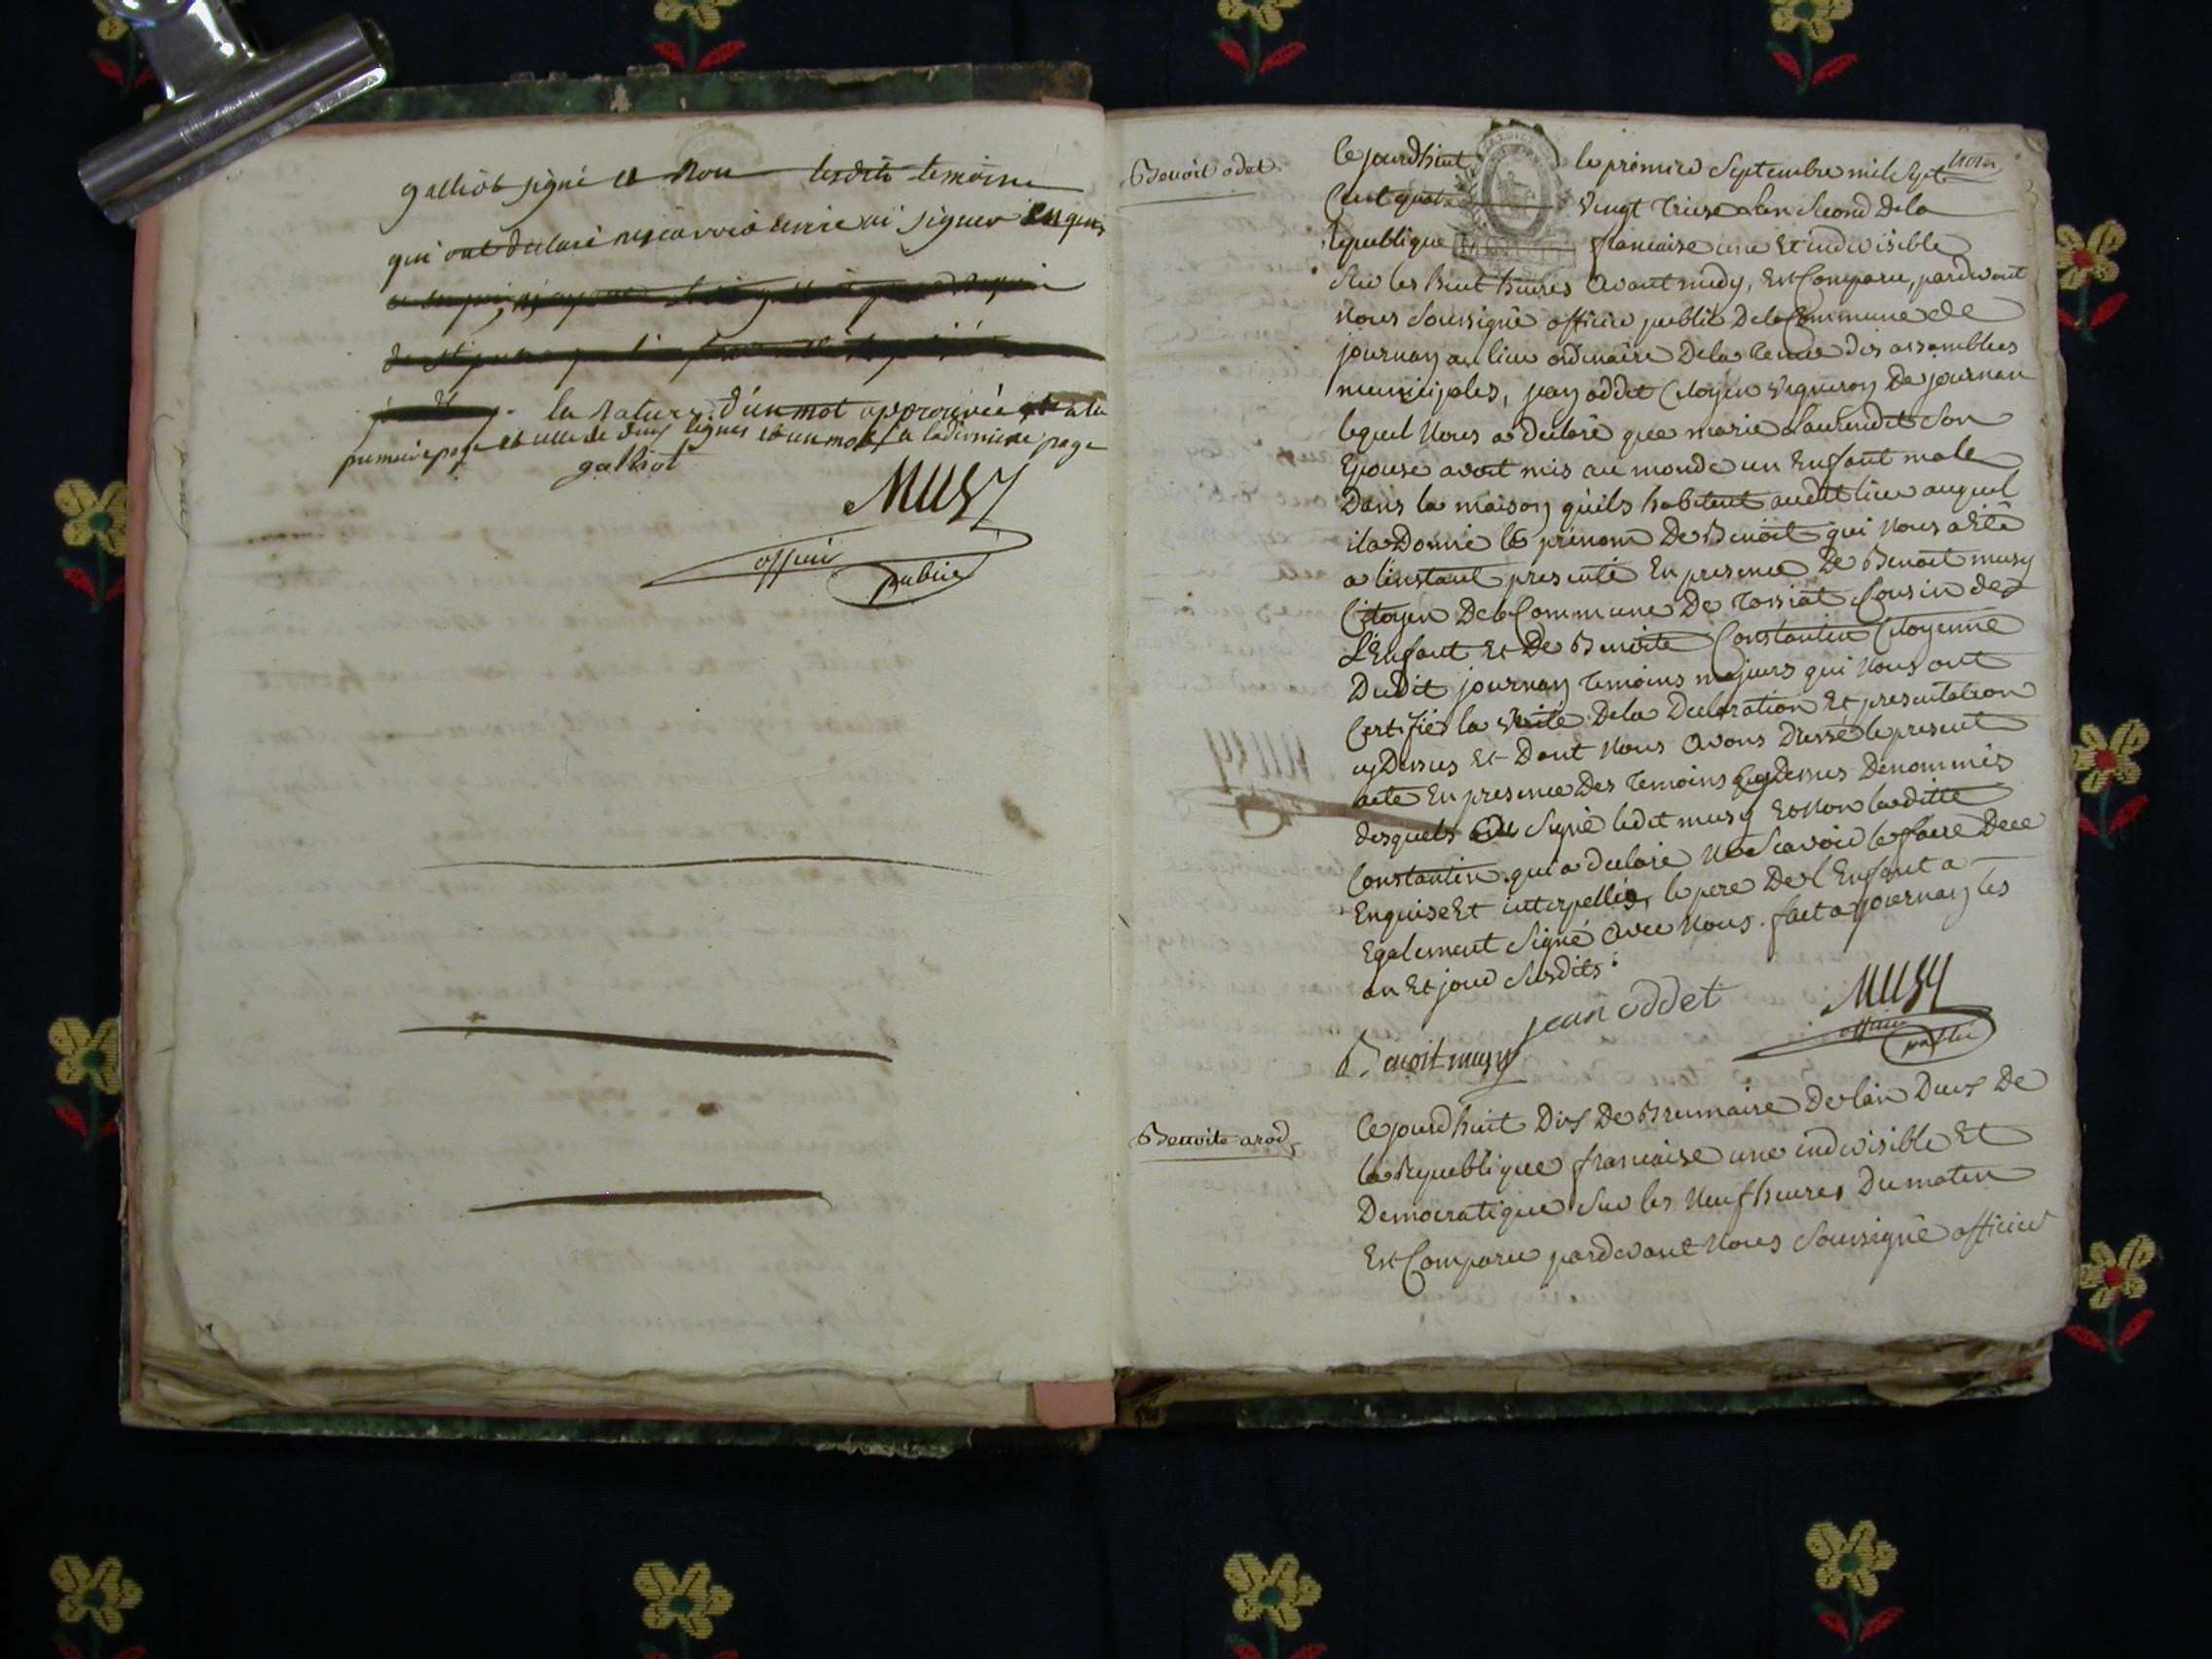 galliot signé et non lesdits temoins
qui ont declaré ne scavoir ecrire ni signer enquis
la rature d'un mot approuvée a la
premiere page et celle de deux lignes et un mot a la derniere page
galliot
MUSY
officier
public
Benoit odet
Cejourdhuit le premier Septembre mil sept
Cent quatre vingt treize lan second De la
Republique francaise une Et indivisible
Sur les huit heures avant midy, Est Comparu, pardevant
Nous Soussigné officier public De la Commune de
journan au lieu ordinaire De la tenue des assemblees
municipales, jean oddet Citoyen Vigneron De journan
lequel Nous a declaré que marie son
Epouse avoit mis au monde un Enfant male
Dans la maison quils habitent audit lieu auquel
il a Donné le prénom De Benoit qui Nous a Eté
a linstant presenté En presence De Benoit musy
Citoyen De la Commune De tossiat Cousin de
L'Enfant Et De Benoite Constantin Citoyenne
Dudit journan temoins majeurs qui Nous ont
Certifié la verité De la Declaration Et presentation
cy Dessus Et Dont Nous avons Dressé le present
acte En presence Des temoins cy Dessus Dénommés
desquels a Signé ledit musy Et Non laditte
Constantin qui a declaré Ne Scavoir le faire De ce
Enquise Et interpellée, le pere De l'Enfant a
Egalement Signé avec Nous. fait a journan les
an Et jour Susdits.
jean oddet
MUSY
officier
public
Benoit musy
Benoite arod
Cejourdhuit Dix De Brumaire De lan Deux De
la Republique francaise une indivisible Et
Democratique Sur les Neuf heures Du matin
Est Comparu pardevant Nous Soussigné officier